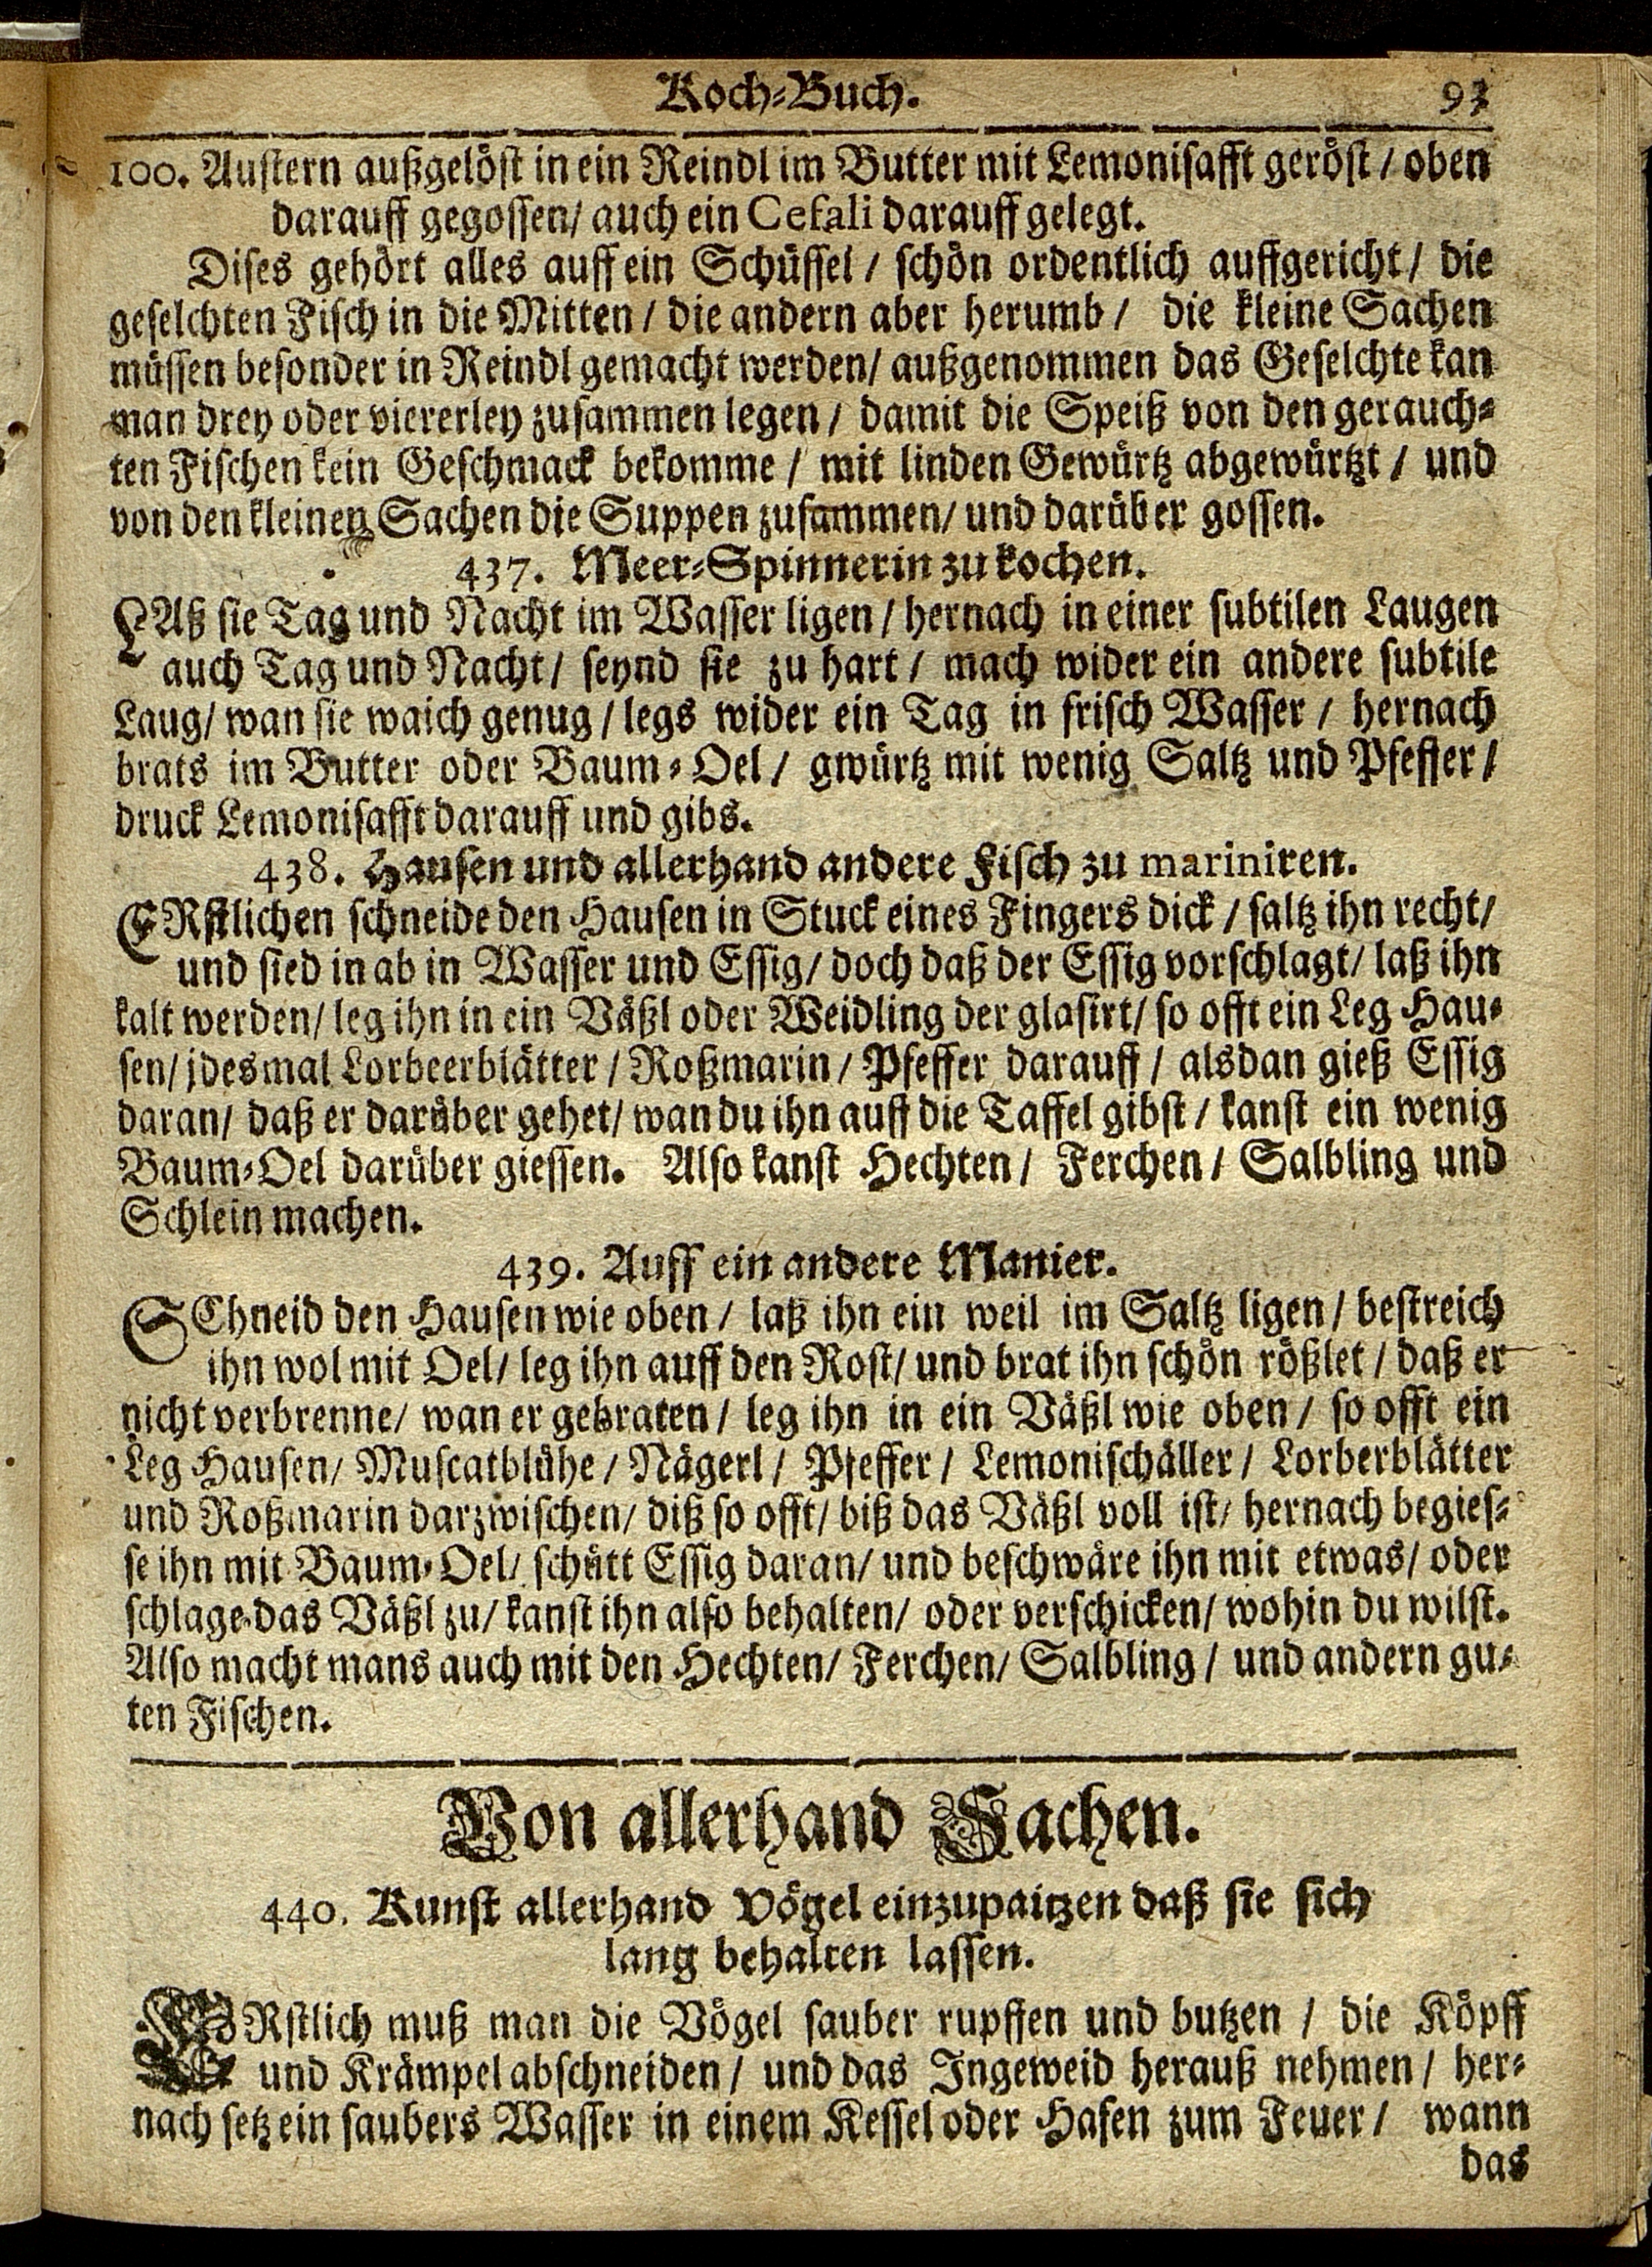 Koch-Buch. 93
100. Austern außgelöst in ein Reindl im Butter mit Lemonisafft geröst / oben
darauff gegossen/ auch ein Cefali darauff gelegt.
Dises gehört alles auff ein Schüssel / schön ordentlich auffgericht / die
geselchten Fisch in die Mitten / die andern aber herumb / die kleine Sachen
müssen besonder in Reindl gemacht werden/ außgenommen das Geselchte kan
man drey oder viererley zusammen legen / damit die Speiß von den gerauch-
ten Fischen kein Geschmack bekomme / mit linden Gewürtz abgewürtzt / und
von den kleinen Sachen die Suppen zusammen/ und darüber gossen.
437. Meer-Spinnerin zu kochen.
LAß sie Tag und Nacht im Wasser ligen / hernach in einer subtilen Laugen
auch Tag und Nacht / seynd sie zu hart / mach wider ein andere subtile
Laug/ wan sie waich genug / legs wider ein Tag in frisch Wasser / hernach
brats im Butter oder Baum-Oel / gwürtz mit wenig Saltz und Pfeffer /
druck Lemonisafft darauff und gibs.
438. Hausen und allerhand andere Fisch zu mariniren.
ERstlichen schneide den Hausen in Stuck eines Fingers dick / saltz ihn recht/
und sied in ab in Wasser und Essig/ doch daß der Essig vorschlagt/ laß ihn
kalt werden/ leg ihn in ein Väßl oder Weidling der glasirt/ so offt ein Leg Hau-
sen/ jdesmal Lorbeerblätter / Roßmarin / Pfeffer darauff / alsdan gieß Essig
daran/ daß er darüber gehet/ wan du ihn auff die Taffel gibst / kanst ein wenig
Baum-Oel darüber giessen. Also kanst Hechten / Ferchen / Salbling und
Schlein machen.
439. Auff ein andere Manier.
SChneid den Hausen wie oben / laß ihn ein weil im Saltz ligen / bestreich
ihn wol mit Oel/ leg ihn auff den Rost/ und brat ihn schön rößlet / daß er
nicht verbrenne/ wan er gebraten / leg ihn in ein Väßl wie oben / so offt ein
Leg Hausen/ Muscatblühe / Nägerl / Pfeffer / Lemonischäller / Lorberblätter
und Roßmarin darzwischen/ diß so offt/ biß das Väßl voll ist/ hernach begies-
se ihn mit Baum-Oel/ schütt Essig daran/ und beschwäre ihn mit etwas/ oder
schlage das Väßl zu/ kanst ihn also behalten/ oder verschicken/ wohin du wilst.
Also macht mans auch mit den Hechten/ Ferchen/ Salbling / und andern gu-
ten Fischen.
Von allerhand Sachen.
440. Kunst allerhand Vögel einzupaitzen daß sie sich
lang behalten lassen.
ERstlich muß man die Vögel sauber rupffen und butzen / die Köpff
und Krämpel abschneiden / und das Ingeweid herauß nehmen / her-
nach setz ein saubers Wasser in einem Kessel oder Hafen zum Feuer / wann
das